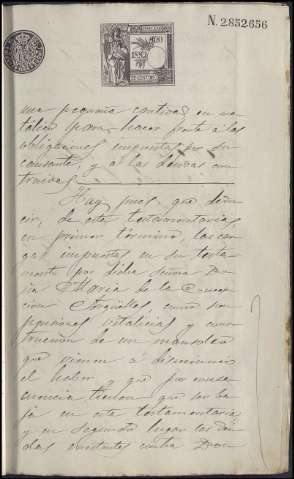 N. 2.852.656
1882
una pequeña cantidad en me
tálico para hacer frente á las
obligaciones impuestas por su
causante, y á las deudas con
traidas.
Hay, pues, que dedu
cir, de esta testamentaría,
en primer término, las car
gas impuestas en su testa
mento por dicha Señora Do
ña Maria de la Concep
cion Argüelles, como son
pensiones vitalicias y cons
truccion de un mausoleo
que vienen á disminuir
el haber, y que por conse
cuencia tienen que ser ba
ja en esta testamentaría
y en segundo lugar las deu
das existentes contra Don